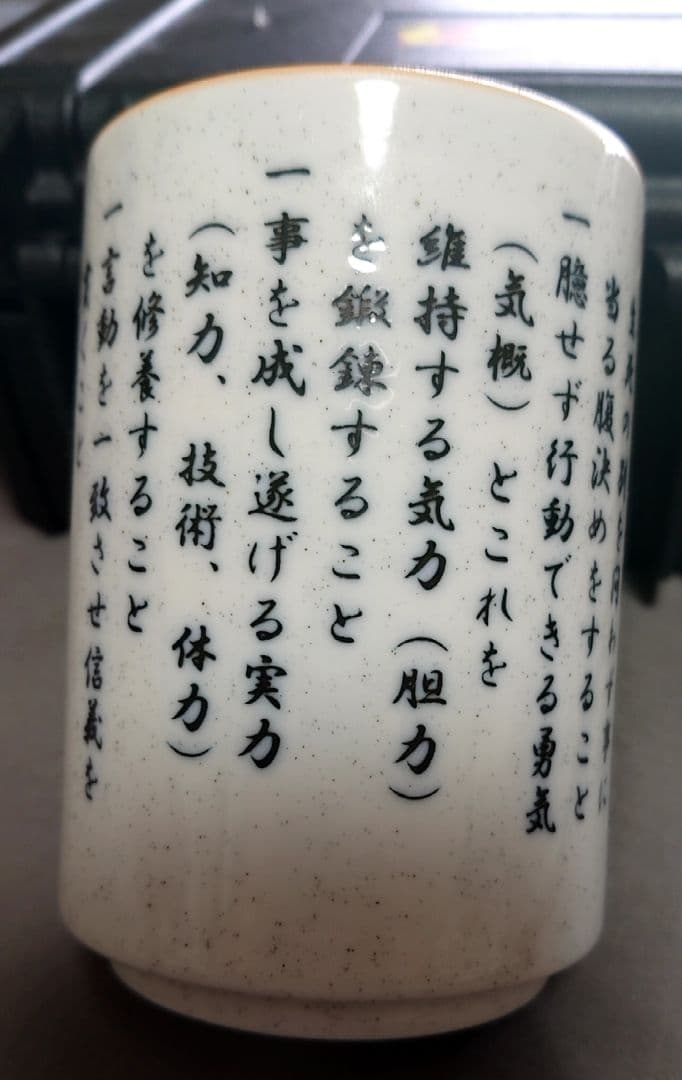 当る腹決めをすること
一臆せず行動できる勇気
（気概）とこれを
維持する気力（胆力）
を鍛錬すること
一事を成し遂げる実力
（知力、技術、体力）
を修養すること
一言動を一致させ信義を